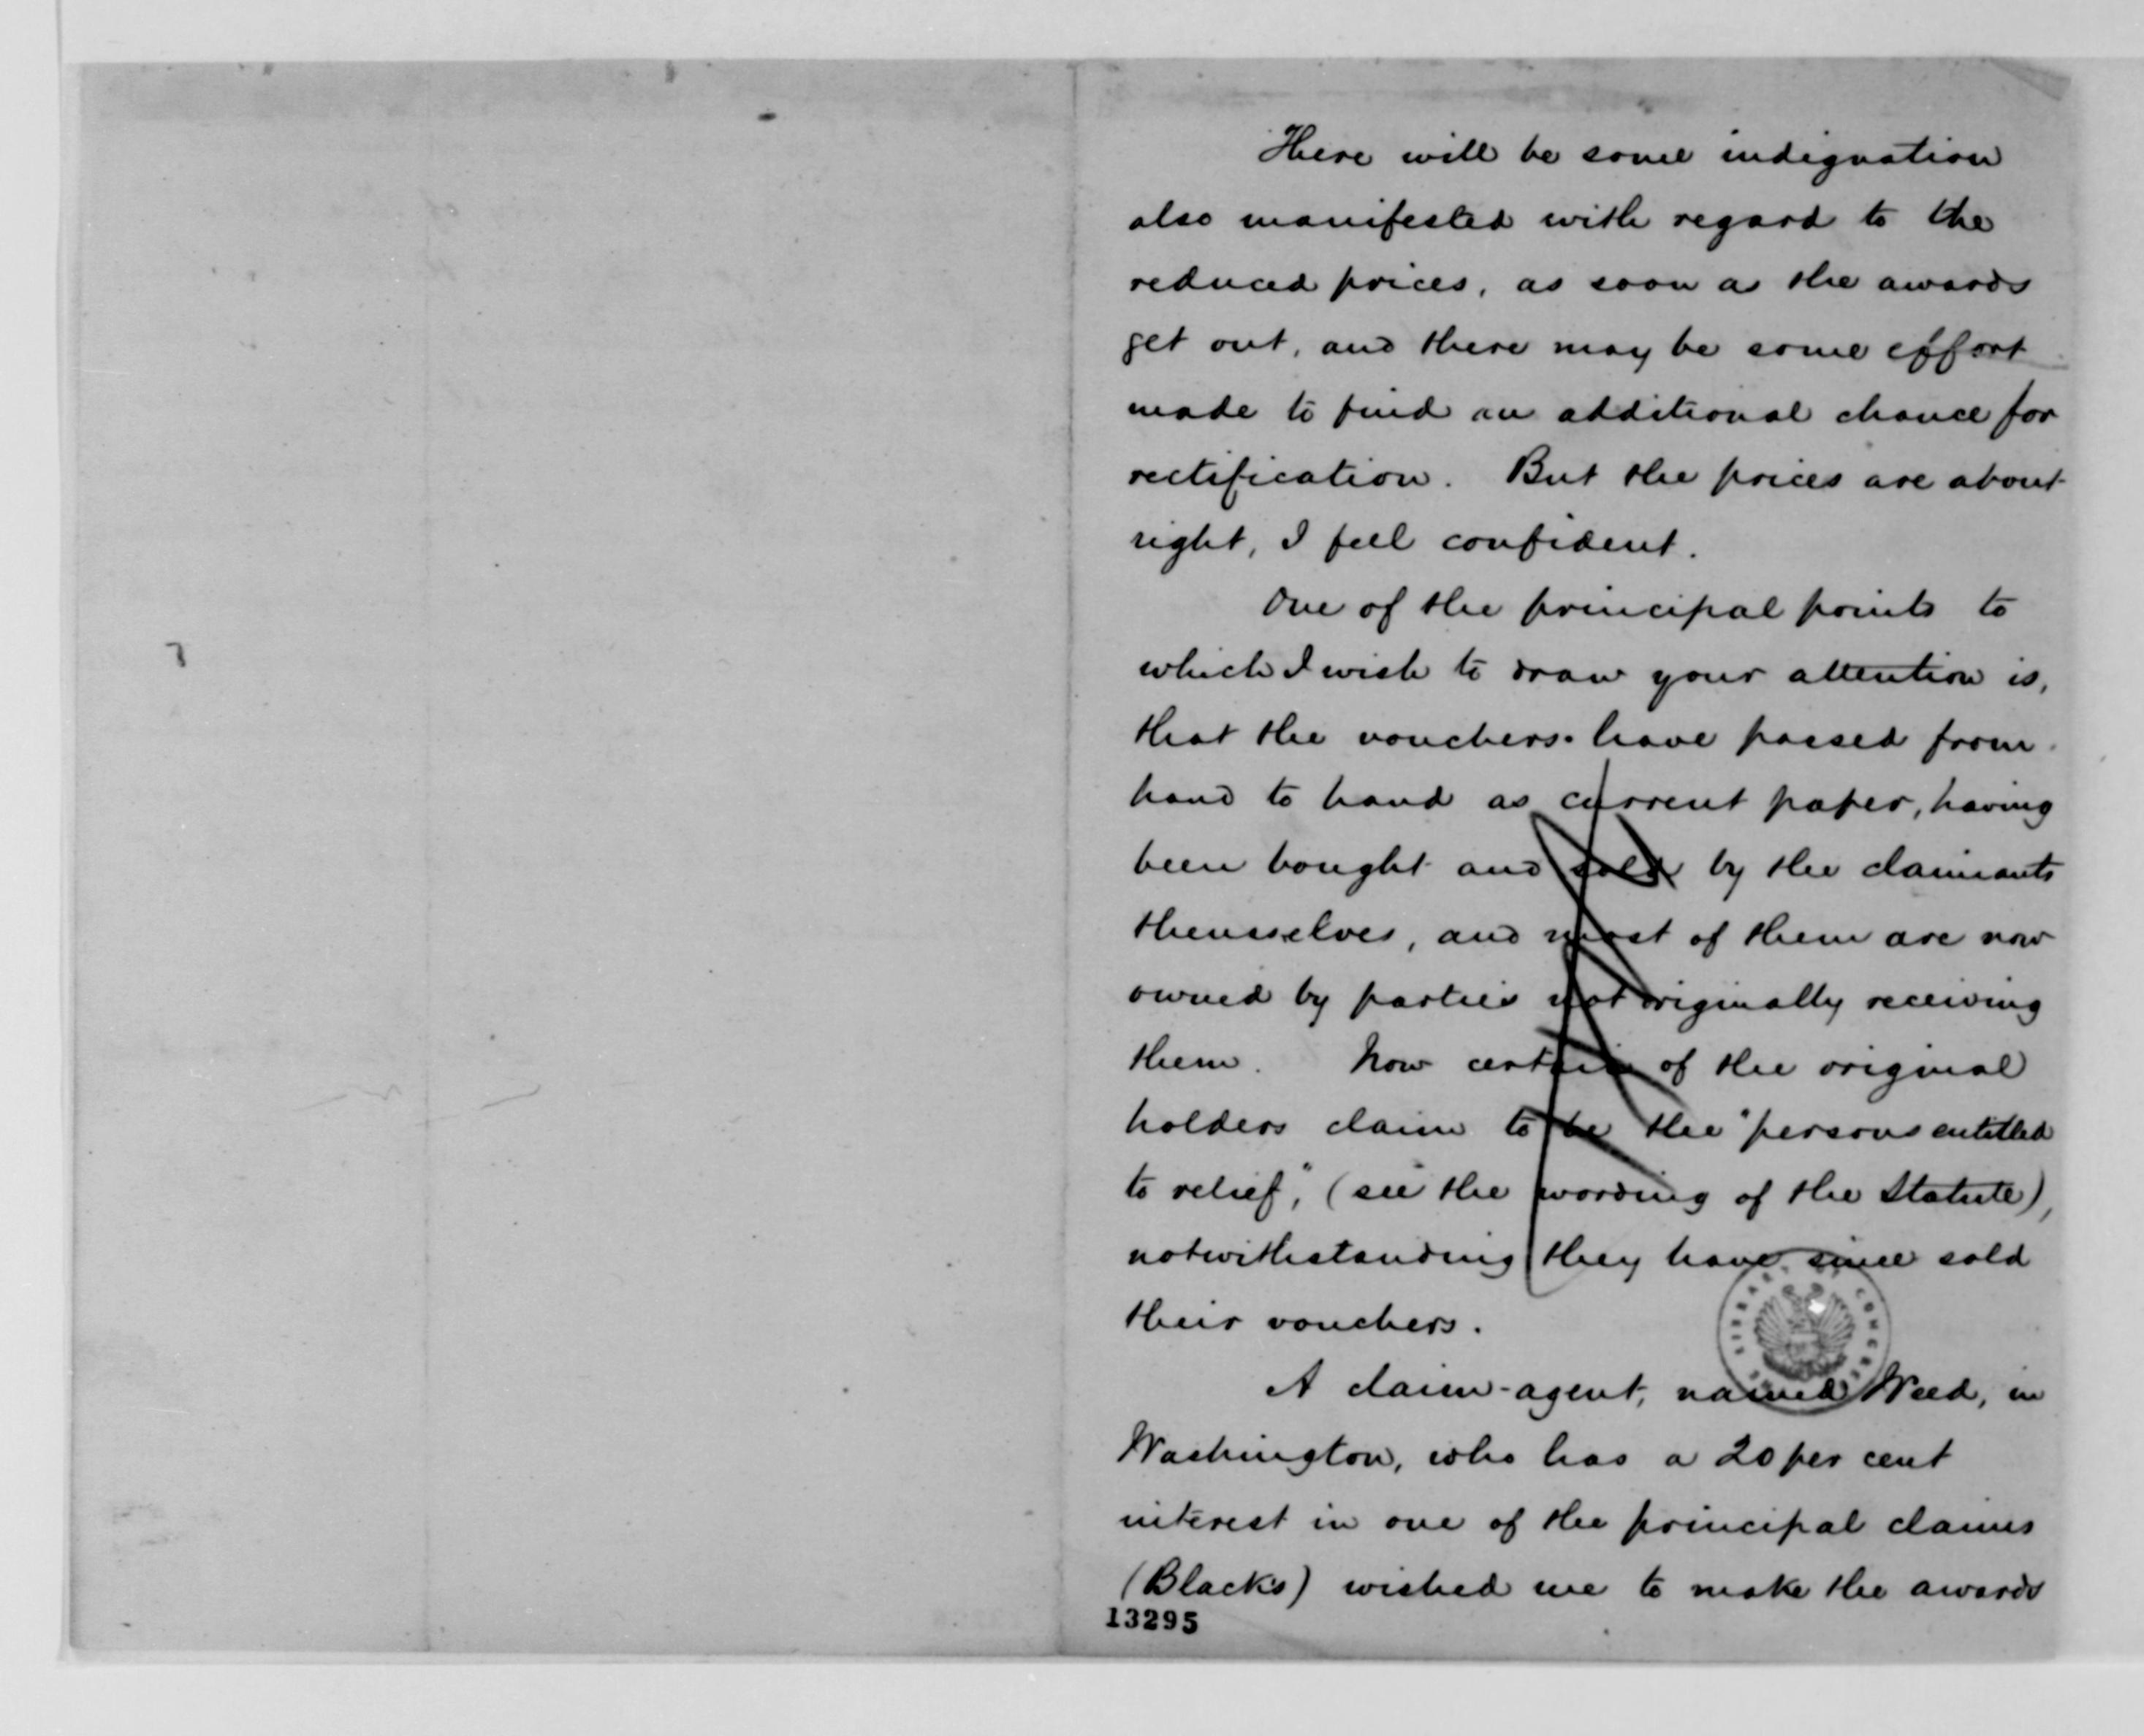 There will be some indignation
also manifested with regard to the
reduced prices, as soon as the awards
get out, and there may be some effort
made to find an additional chance for
rectification. But the prices are about
right, I feel confident.
One of the principal points to
which I wish to draw your attention is,
that the vouchers have passed from
hand to hand as current paper, having
been bought and sold by the claimants
themselves, and most of them are now
owned by parties not originally receiving
them. Now certain of the original
holders claim to be the "persons entitled
to relief," (see the wording of the Statute),
notwithstanding they have since sold
their vouchers.
A claim-agent, named Weed, in
Washington, who has a 20 per cent
interest in one of the principal claims
(Blacks) wished me to make the awards
13295